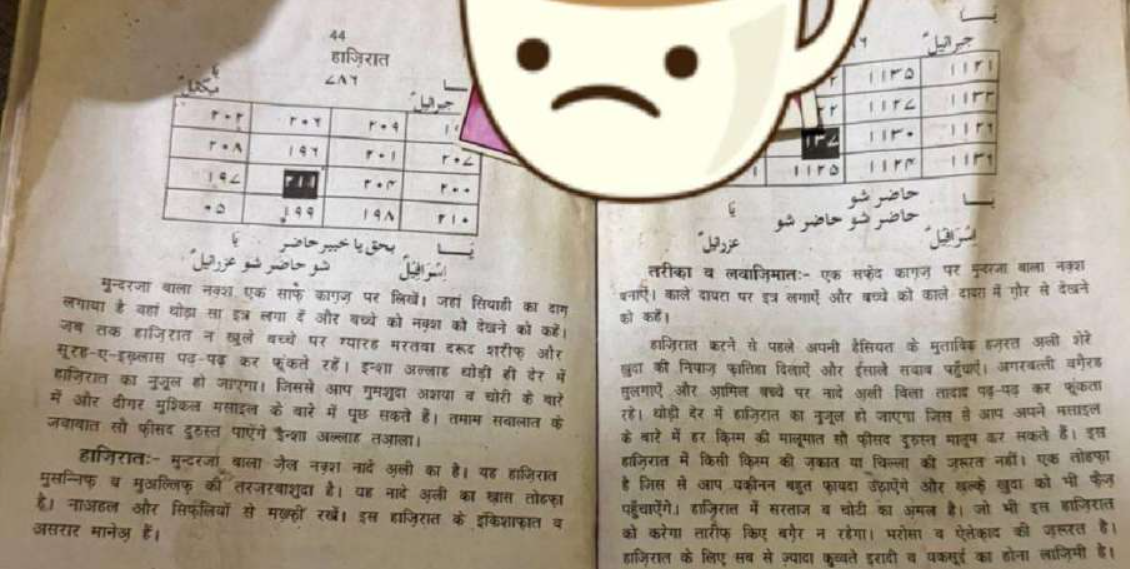 44
हाज़िरात
٧٨٦
یا
میکائیل
یا
جبرائیل
٢٠٣ ٢٠٦ ٢٠٩
٢٠٨ ١٩٦ ٢٠١ ٢٠٧
١٩٧ ٢١١ ٢٠٤ ٢٠٠
٠٥ ١٩٩ ١٩٨ ٢١٠
یا بحق یا خبیر حاضر یا
اسرافیل شو حاضر شو عزرائیل
मुन्दरजा बाला नक़्श एक साफ़ काग़ज़ पर लिखें। जहां सियाही का दाग़
लगाया है वहां थोड़ा सा इत्र लगा दें और बच्चे को नक़्श को देखने को कहें।
जब तक हाज़िरात न खुले बच्चे पर ग्यारह मरतबा दरूद शरीफ़ और
सूरह-ए-इख़्लास पढ़-पढ़ कर फूंकते रहें। इन्शा अल्लाह थोड़ी ही देर में
हाज़िरात का नुज़ूल हो जाएगा। जिससे आप गुमशुदा अशया व चोरी के बारे
में और दीगर मुश्किल मसाइल के बारे में पूछ सकते हैं। तमाम सवालात के
जवाबात सौ फ़ीसद दुरुस्त पाएंगे इन्शा अल्लाह तआला।
हाज़िरातः- मुन्दरजा बाला जेल नक़्श नादे अ़ली का है। यह हाज़िरात
मुसन्निफ़ व मुअल्लिफ़ की तरजरबाशुदा है। यह नादे अ़ली का ख़ास तोहफ़ा
है। नाअहल और सिफ़लियों से मख़्फ़ी रखें। इस हाज़िरात के इंकिशाफ़ात व
असरार मानेअ़ हैं।
یا
جبرائیل
١١٣٥ ١١٢١
١١٢٧ ١١٣٣
١١٣٠ ١١٢٦
١١٢٥ ١١٢٤ ١١٣٦
یا حاضر شو یا
عزرائیل حاضر شو حاضر شو اسرافیل
तरीक़ा व लवाज़िमातः- एक सफ़ेद काग़ज़ पर मुन्दरजा बाला नक़्श
बनाएं। काले दायरा पर इत्र लगाएें और बच्चे को काले दायरा में ग़ौर से देखने
को कहें।
हाज़िरात करने से पहले अपनी हैसियत के मुताबिक़ हज़रत अ़ली शेरे
ख़ुदा की नियाज़ फ़ातिहा दिलाएें और ईसाले सवाब पहुँचाएें। अगरबत्ती वग़ैरह
सुलगाएें और आ़मिल बच्चे पर नादे अ़ली बिला तादाद पढ़-पढ़ कर फूंकता
रहे। थोड़ी देर में हाज़िरात का नुज़ूल हो जाएगा जिस से आप अपने मसाइल
के बारे में हर क़िस्म की मालूमात सौ फ़ीसद दुरुस्त मालूम कर सकते हैं। इस
हाज़िरात में किसी क़िस्म की ज़कात या चिल्ला की ज़रूरत नहीं। एक तोहफ़ा
है जिस से आप यक़ीनन बहुत फ़ायदा उठाएेंगे और ख़ल्के ख़ुदा को भी फ़ैज़
पहुँचाएेंगे। हाज़िरात में सरताज व चोटी का अ़मल है। जो भी इस हाज़िरात
को करेगा तारीफ़ किए बग़ैर न रहेगा। भरोसा व ऐतेक़ाद की ज़रूरत है।
हाज़िरात के लिए सब से ज़्यादा क़ुव्वते इरादी व यकसूई का होना लाज़िमी है।